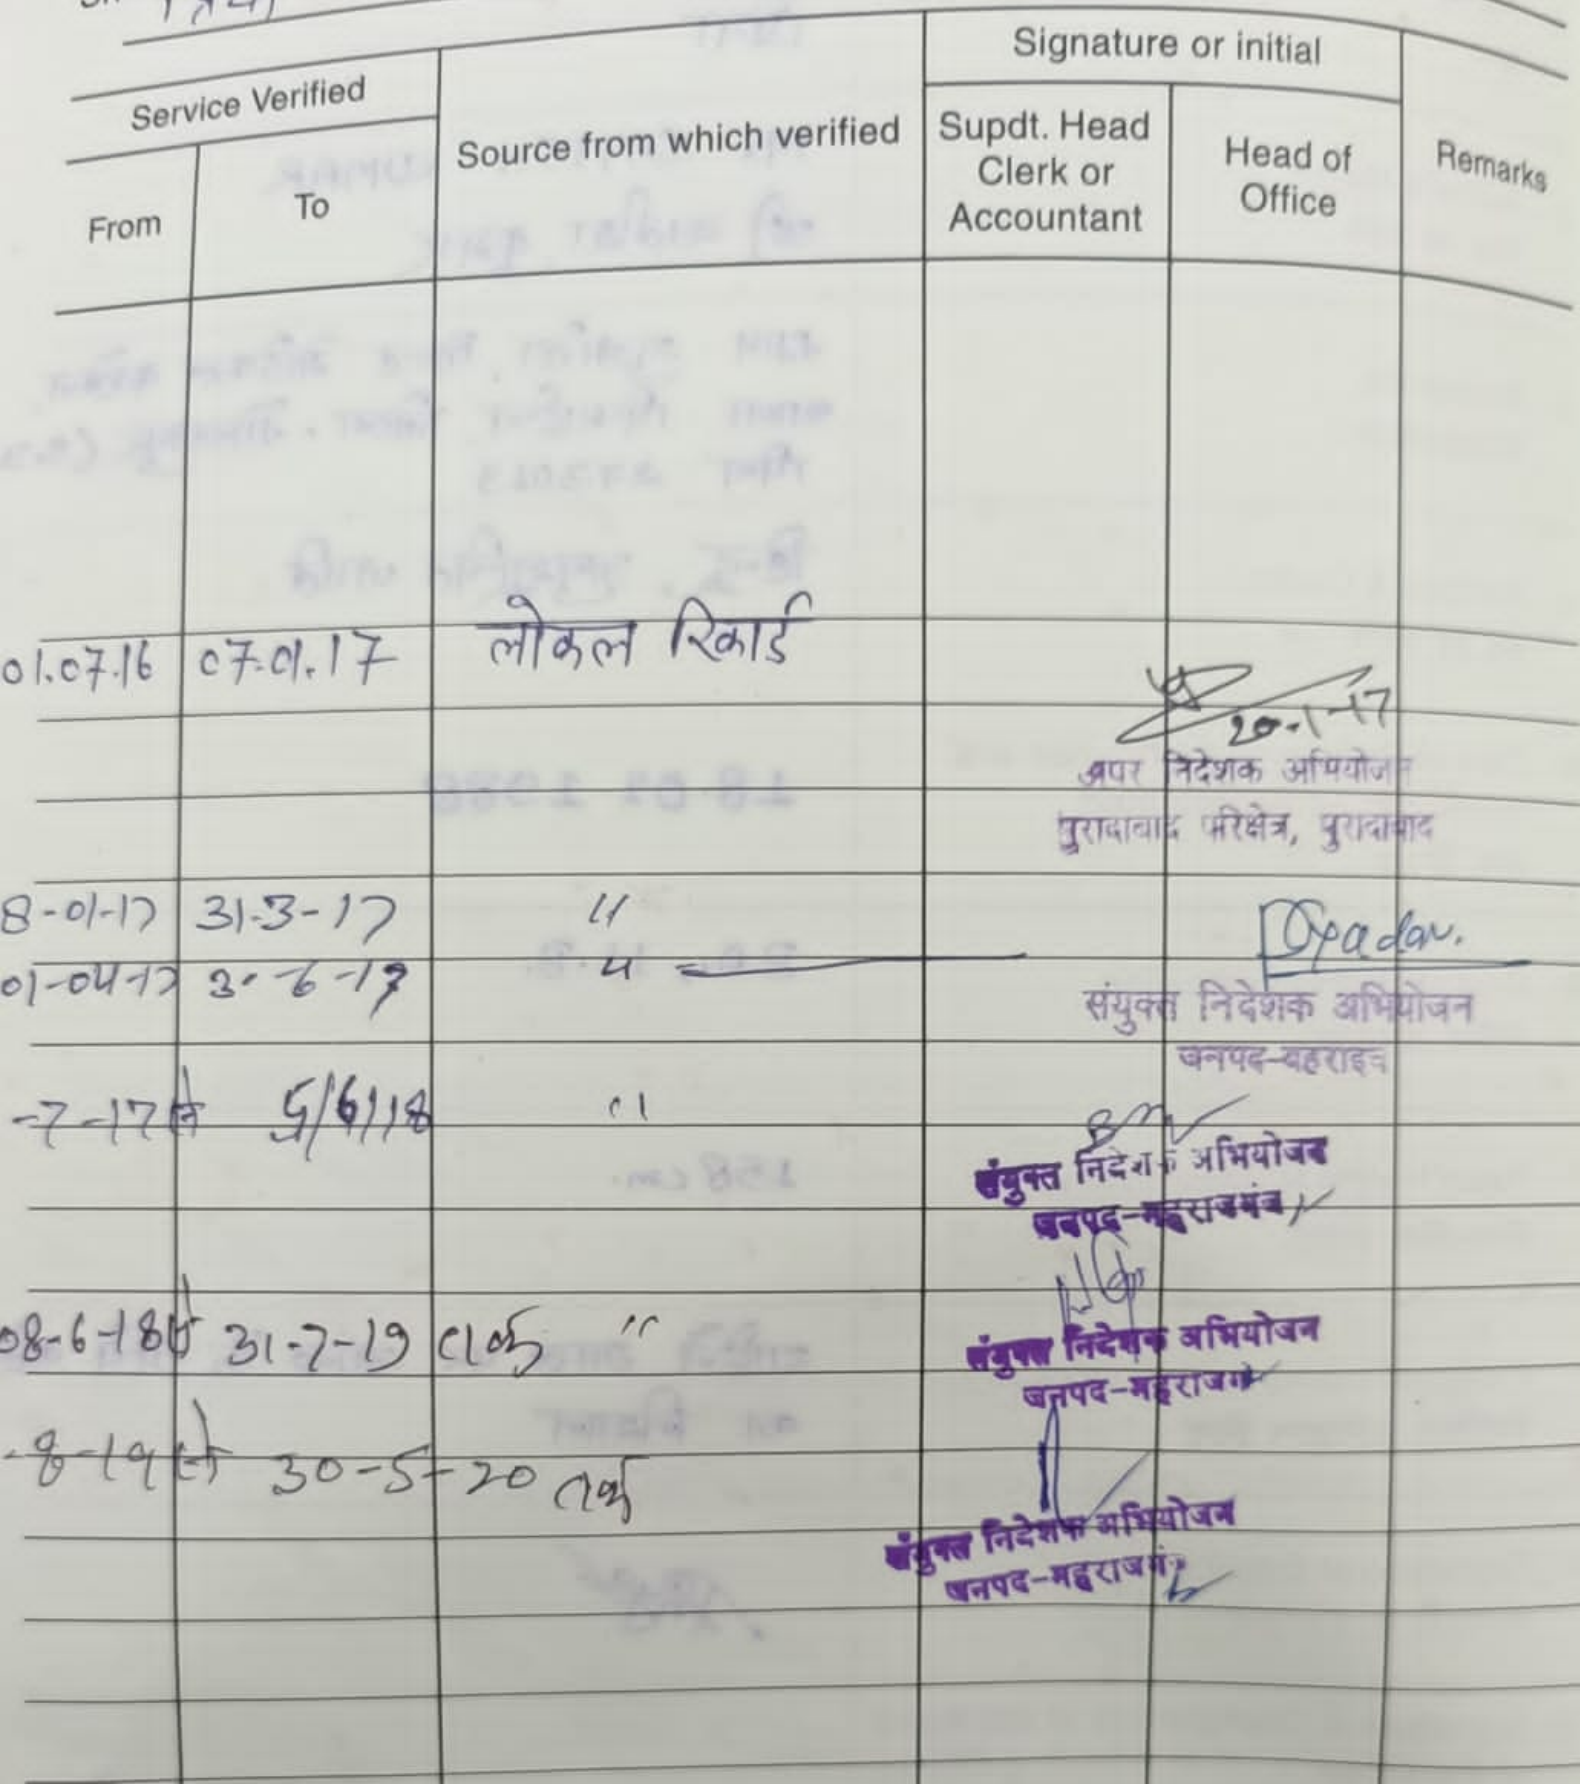 Service Verified
From
To
Source from which verified
Signature or initial
Supdt. Head Clerk or Accountant
Head of Office
Remarks
01.07.16 07.01.17 लोकल रिकार्ड
20-1-17
अपर निदेशक अभियोजन
मुरादाबाद परिक्षेत्र, मुरादाबाद
8-01-17 31-3-17 "
Yadav.
01-04-17 30-6-17 "
संयुक्त निदेशक अभियोजन
जनपद-बहराइच
-7-17 से 5/6/18 "
संयुक्त निदेशक अभियोजन
जनपद-महराजगंज
08-6-18 से 31-7-19 तक "
संयुक्त निदेशक अभियोजन
जनपद-महराजगंज
-8-19 से 30-5-20 तक
संयुक्त निदेशक अभियोजन
जनपद-महराजगंज